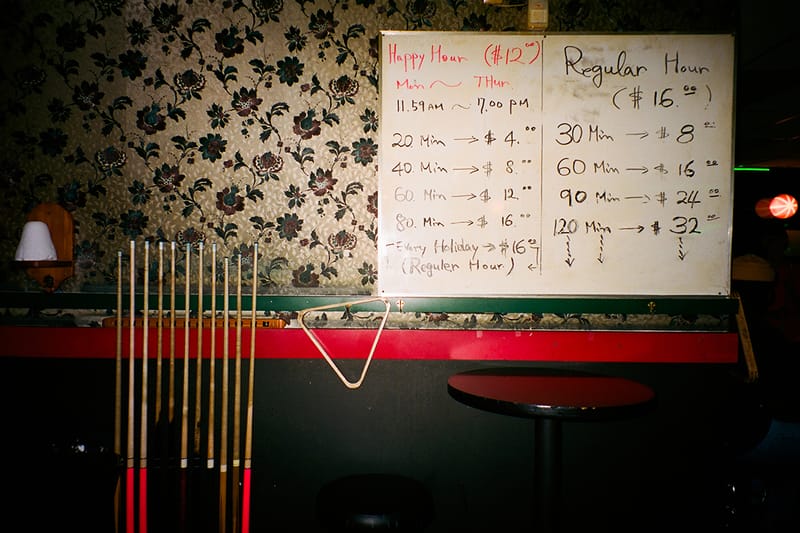 Happy Hour ($12.00)
Mon ~ THur.
11.59 AM ~ 7.00 PM
20 Min → $ 4.00
40. Min → $ 8.00
60. Min → $ 12.00
80. Min → $ 16.00
Every Holiday → $16.00
(Reguler Hour.)
Regular Hour
($16.00)
30 Min → $ 8.00
60 Min → $ 16.00
90 Min → $ 24.00
120 Min → $ 32.00